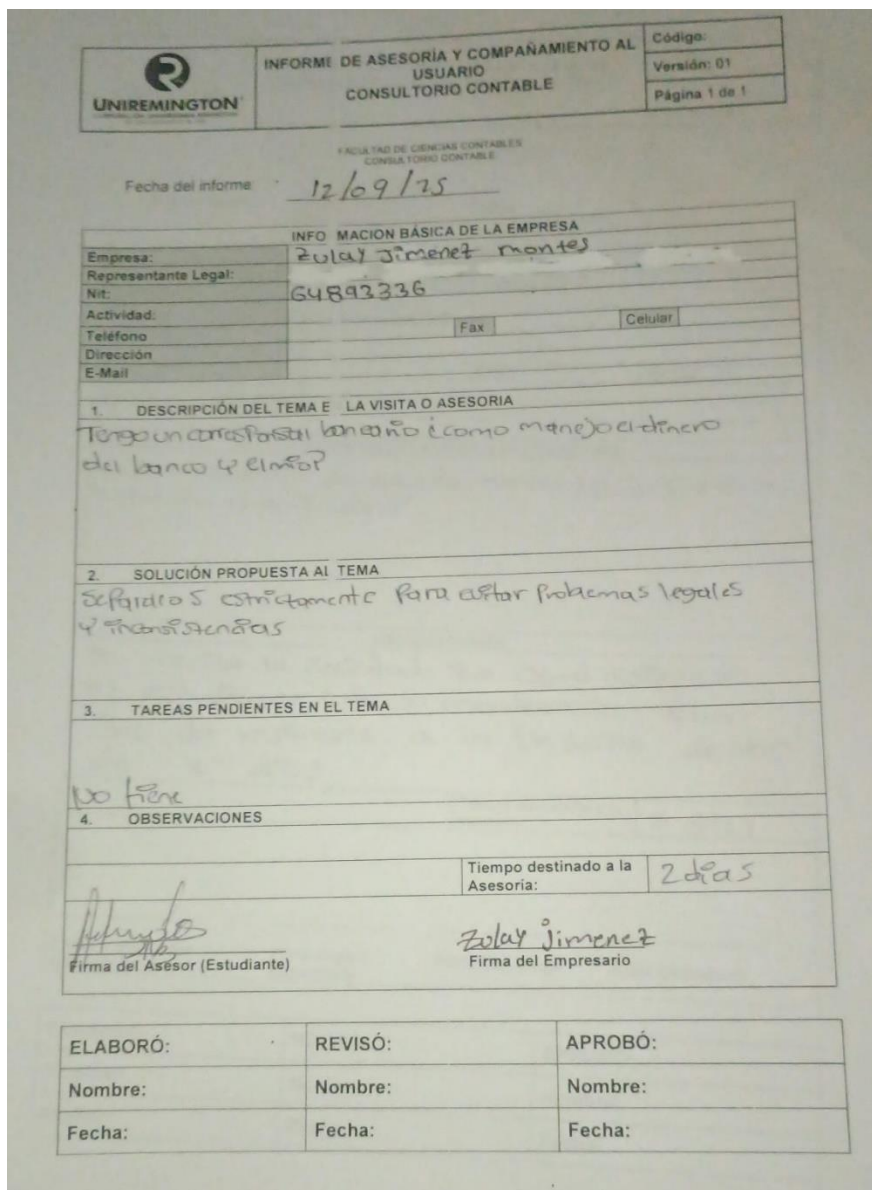 UNIREMINGTON
INFORME DE ASESORÍA Y COMPAÑAMIENTO AL
USUARIO
CONSULTORIO CONTABLE
Código:
Versión: 01
Página 1 de 1
FACULTAD DE CIENCIAS CONTABLES
CONSULTORIO CONTABLE
Fecha del informe: 12/09/25
INFO MACION BÁSICA DE LA EMPRESA
Empresa: Zulay Jimenez montes
Representante Legal:
Nit: 64893336
Actividad:
Teléfono Fax Celular
Dirección
E-Mail
1. DESCRIPCIÓN DEL TEMA E LA VISITA O ASESORIA
Tengo un corresponsal bancario ¿como manejo el dinero
del banco y el mío?
2. SOLUCIÓN PROPUESTA AL TEMA
Separalos estrictamente Para evitar Problemas legales
y inconsistencias
3. TAREAS PENDIENTES EN EL TEMA
No tiene
4. OBSERVACIONES
Tiempo destinado a la
Asesoría: 2 días
Zulay Jimenez
Firma del Asesor (Estudiante) Firma del Empresario
ELABORÓ: REVISÓ: APROBÓ:
Nombre: Nombre: Nombre:
Fecha: Fecha: Fecha: